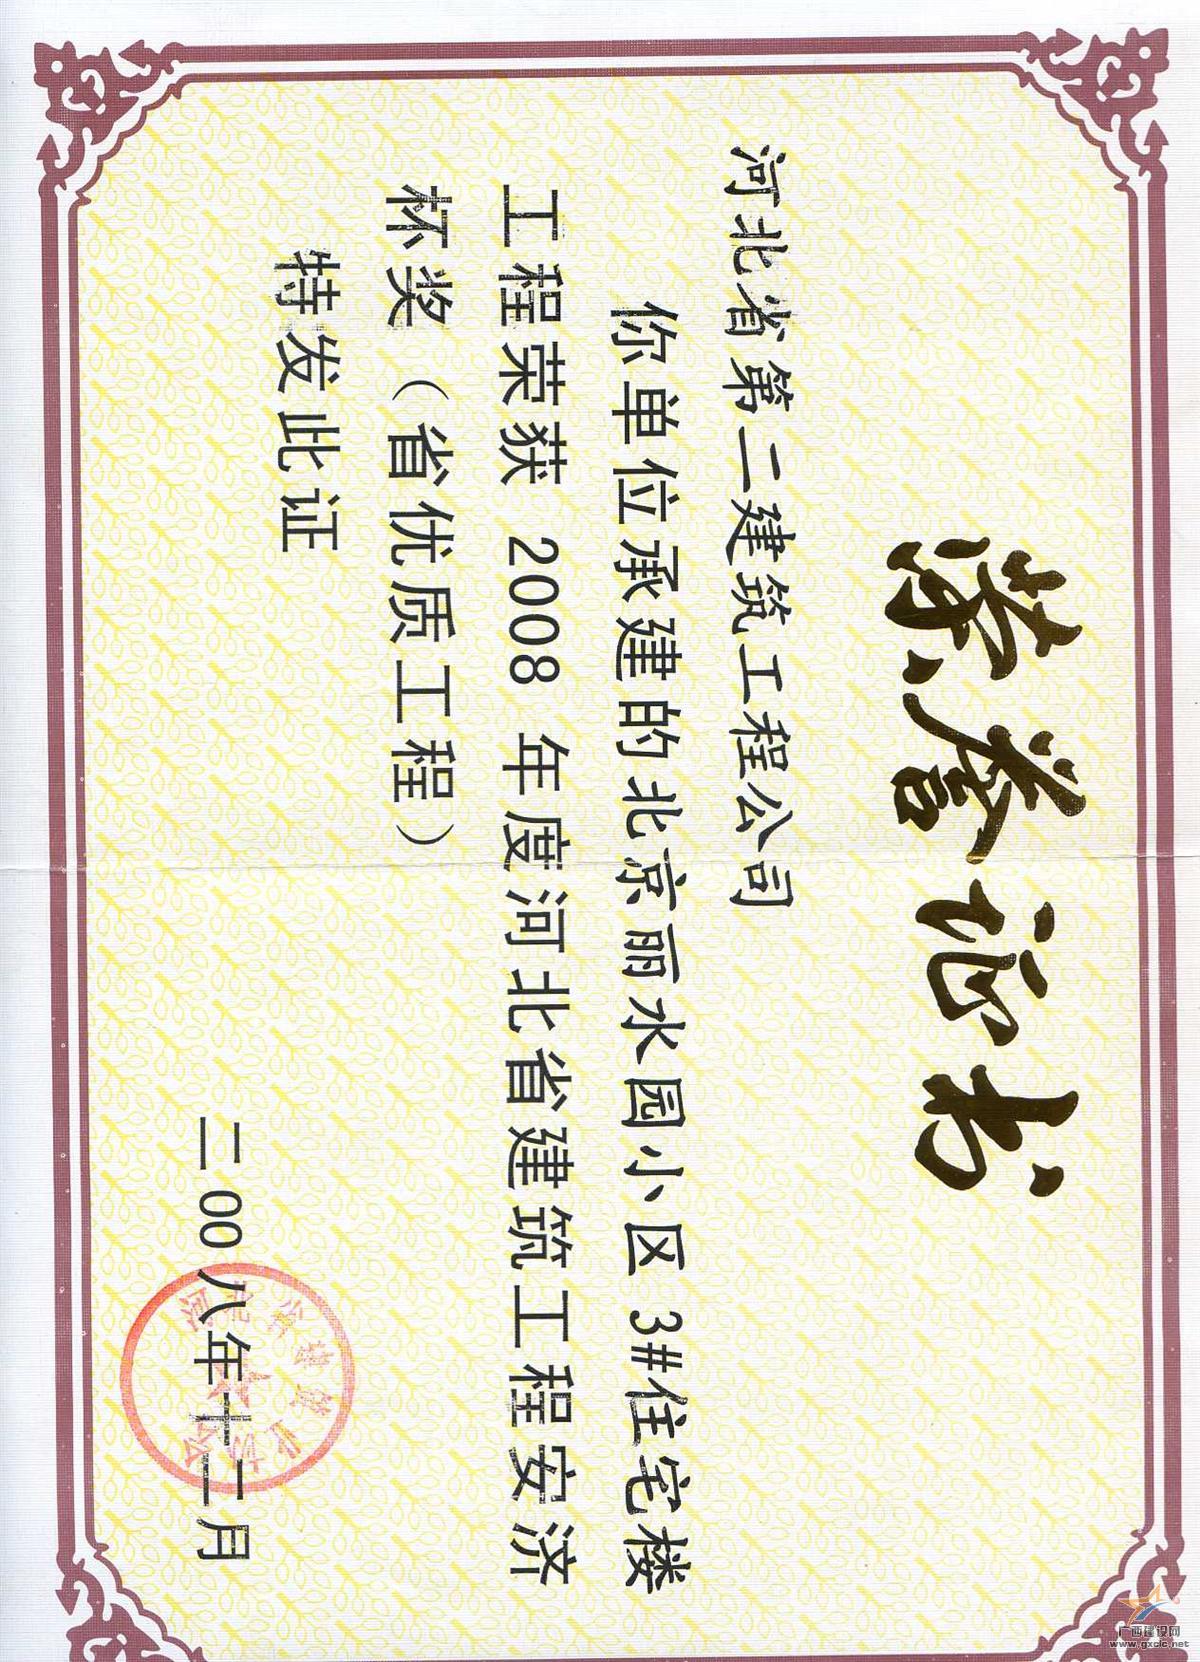 荣誉证书
河北省第二建筑工程公司
你单位承建的北京丽水园小区 3#住宅楼
工程荣获 2008 年度河北省建筑工程安济
杯奖（省优质工程）
特发此证
二00八年十二月
河北省建筑业协会
广西建设网
www.gxcic.net